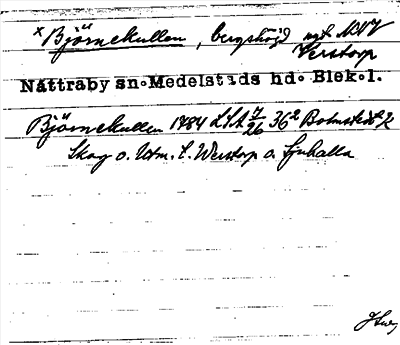 x Björnekullen, bergshöjd
Verstorp
Nättraby sn. Medelstads hd. Blek.l.
Björnekullen 1784 LSA 7/26 36² Bolmstedt K
Skog o. Utm. t. Werstorp o. Ljuhalla